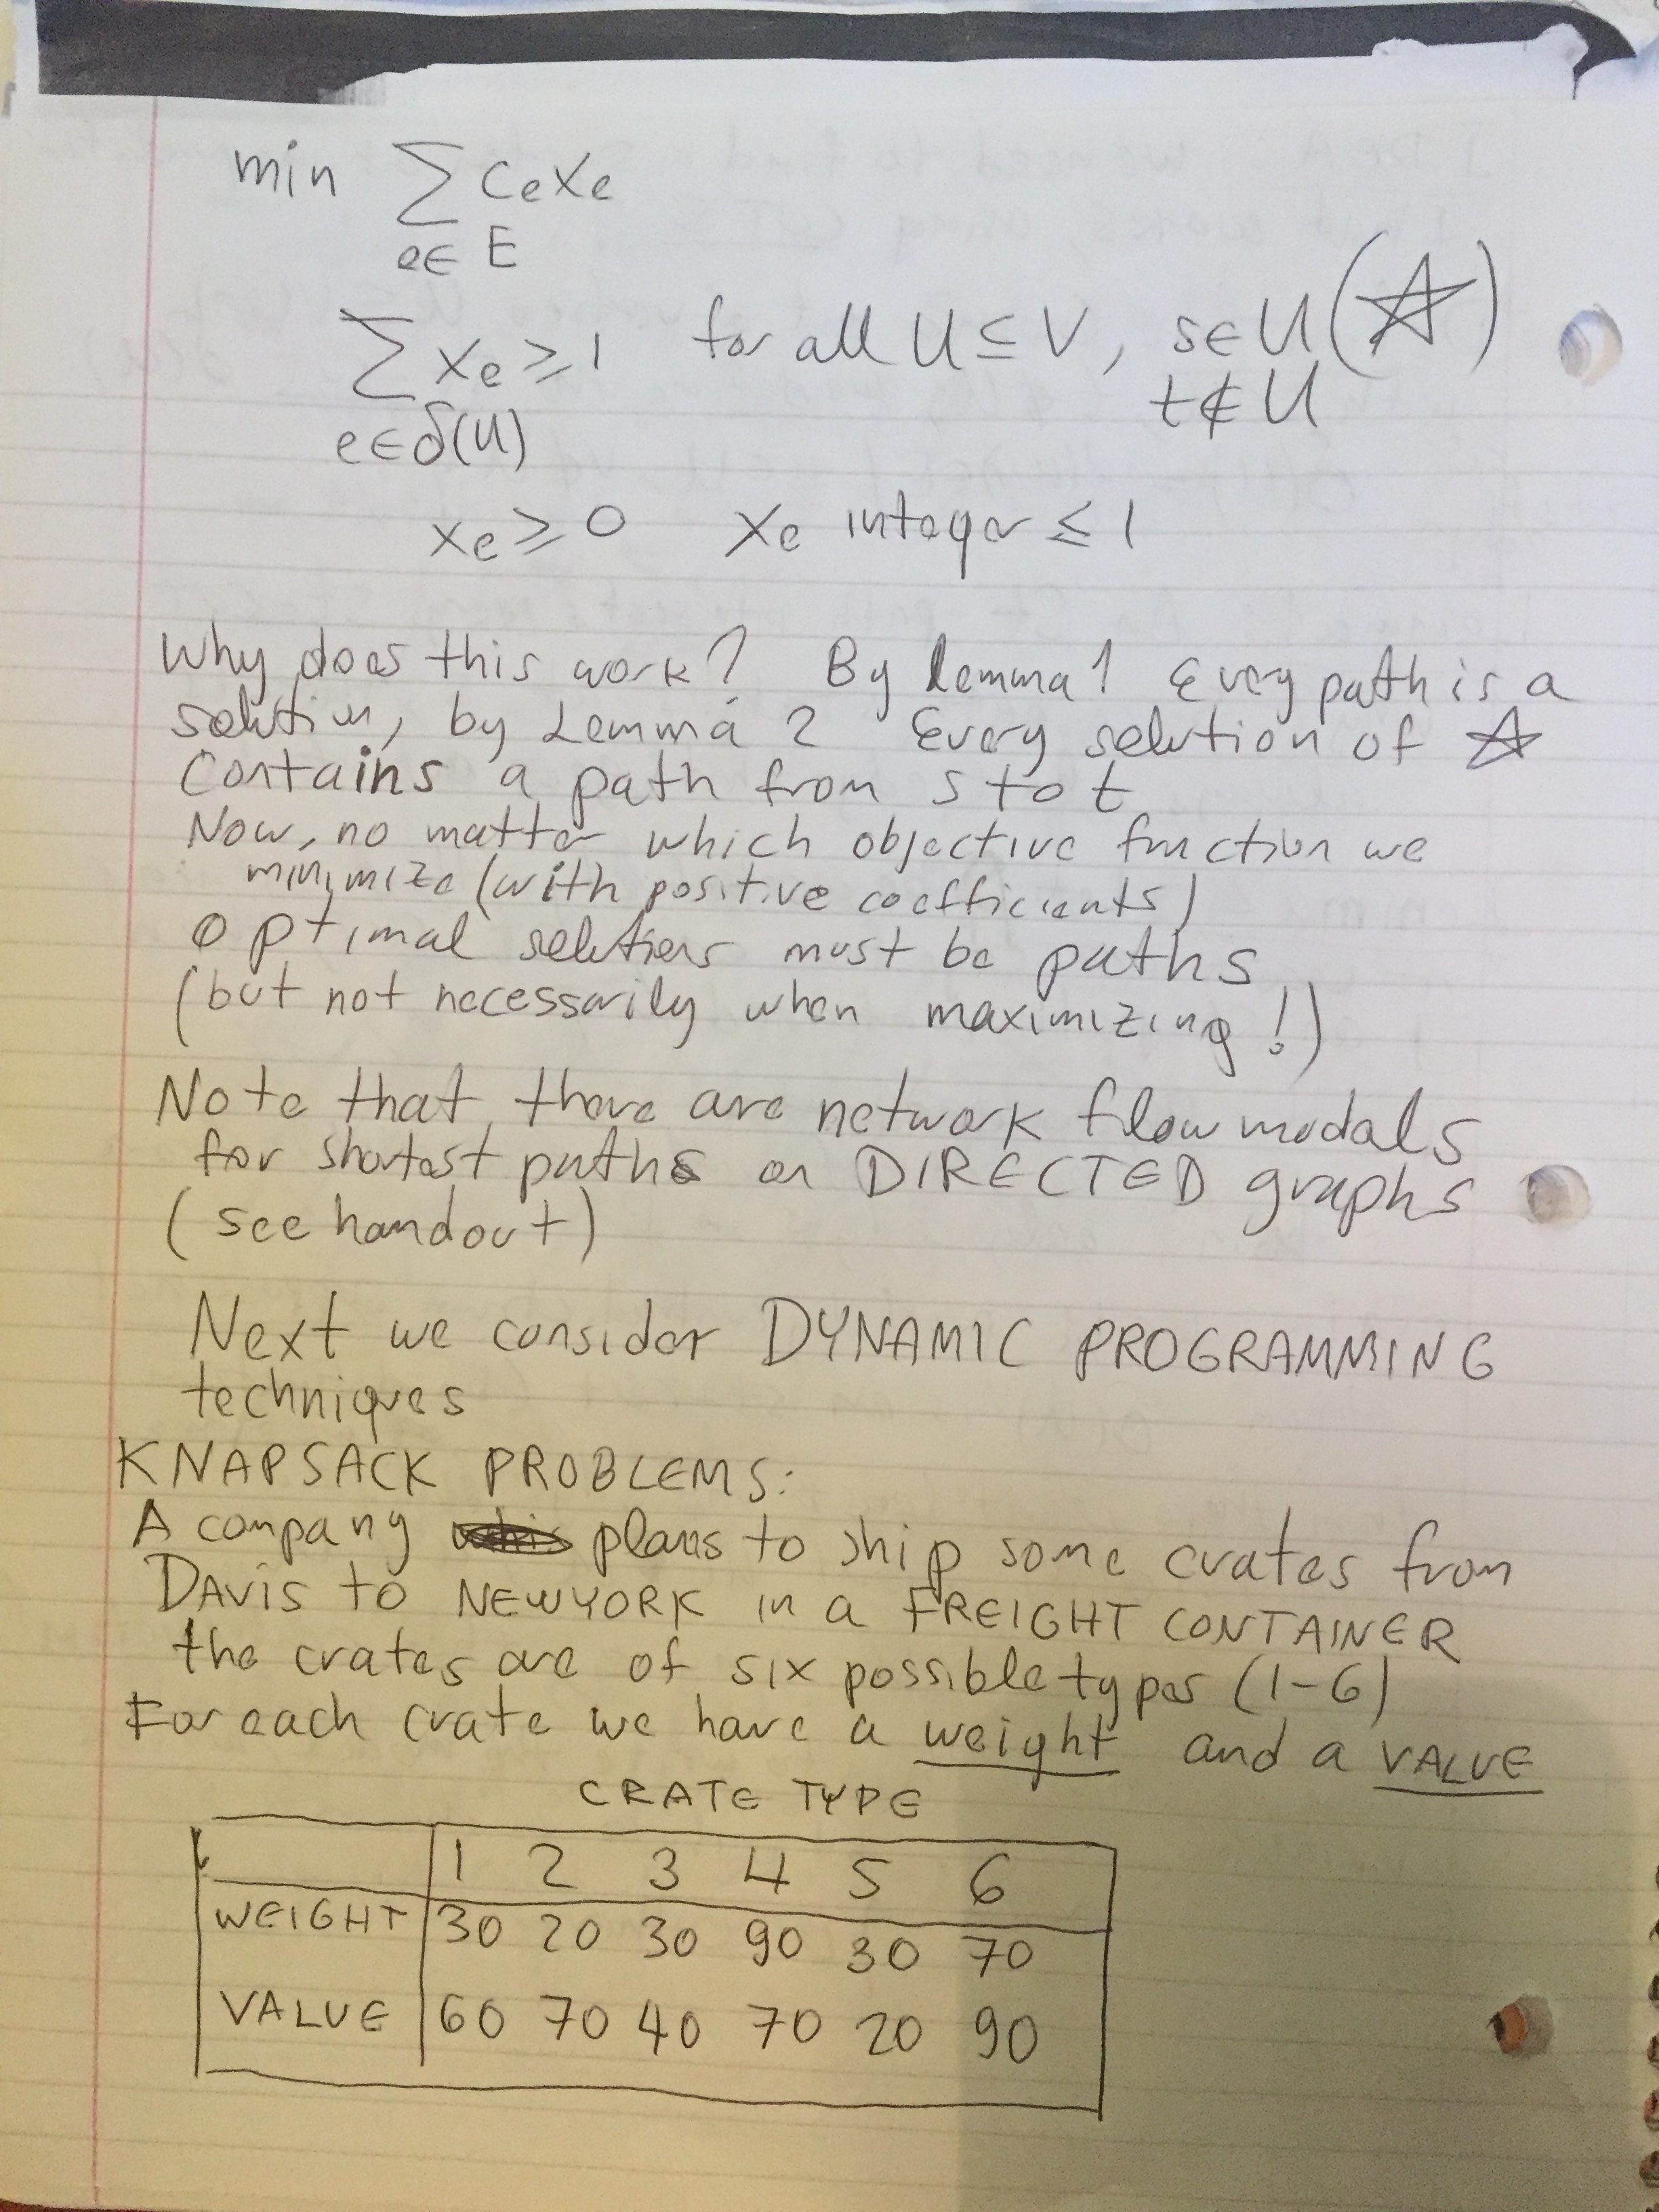 min ∑ CeXe
e∈ E
∑ Xe ≥ 1 for all U ⊆ V, s∈U (☆)
e∈δ(U) t∉U
Xe ≥ 0 Xe integer ≤ 1
Why does this work? By Lemma 1 Every path is a
solution, by Lemma 2 Every solution of ☆
Contains a path from s to t
Now, no matter which objective function we
minimize (with positive coefficients)
optimal solutions must be paths
(but not necessarily when maximizing!)
Note that, there are network flow models
for shortest paths on DIRECTED graphs
(see handout)
Next we consider DYNAMIC PROGRAMMING
techniques
KNAPSACK PROBLEMS:
A company plans to ship some crates from
DAVIS to NEWYORK in a FREIGHT CONTAINER
the crates are of six possible types (1-6)
For each crate we have a weight and a VALUE
CRATE TYPE
1 2 3 4 5 6
WEIGHT 30 20 30 90 30 70
VALUE 60 70 40 70 20 90